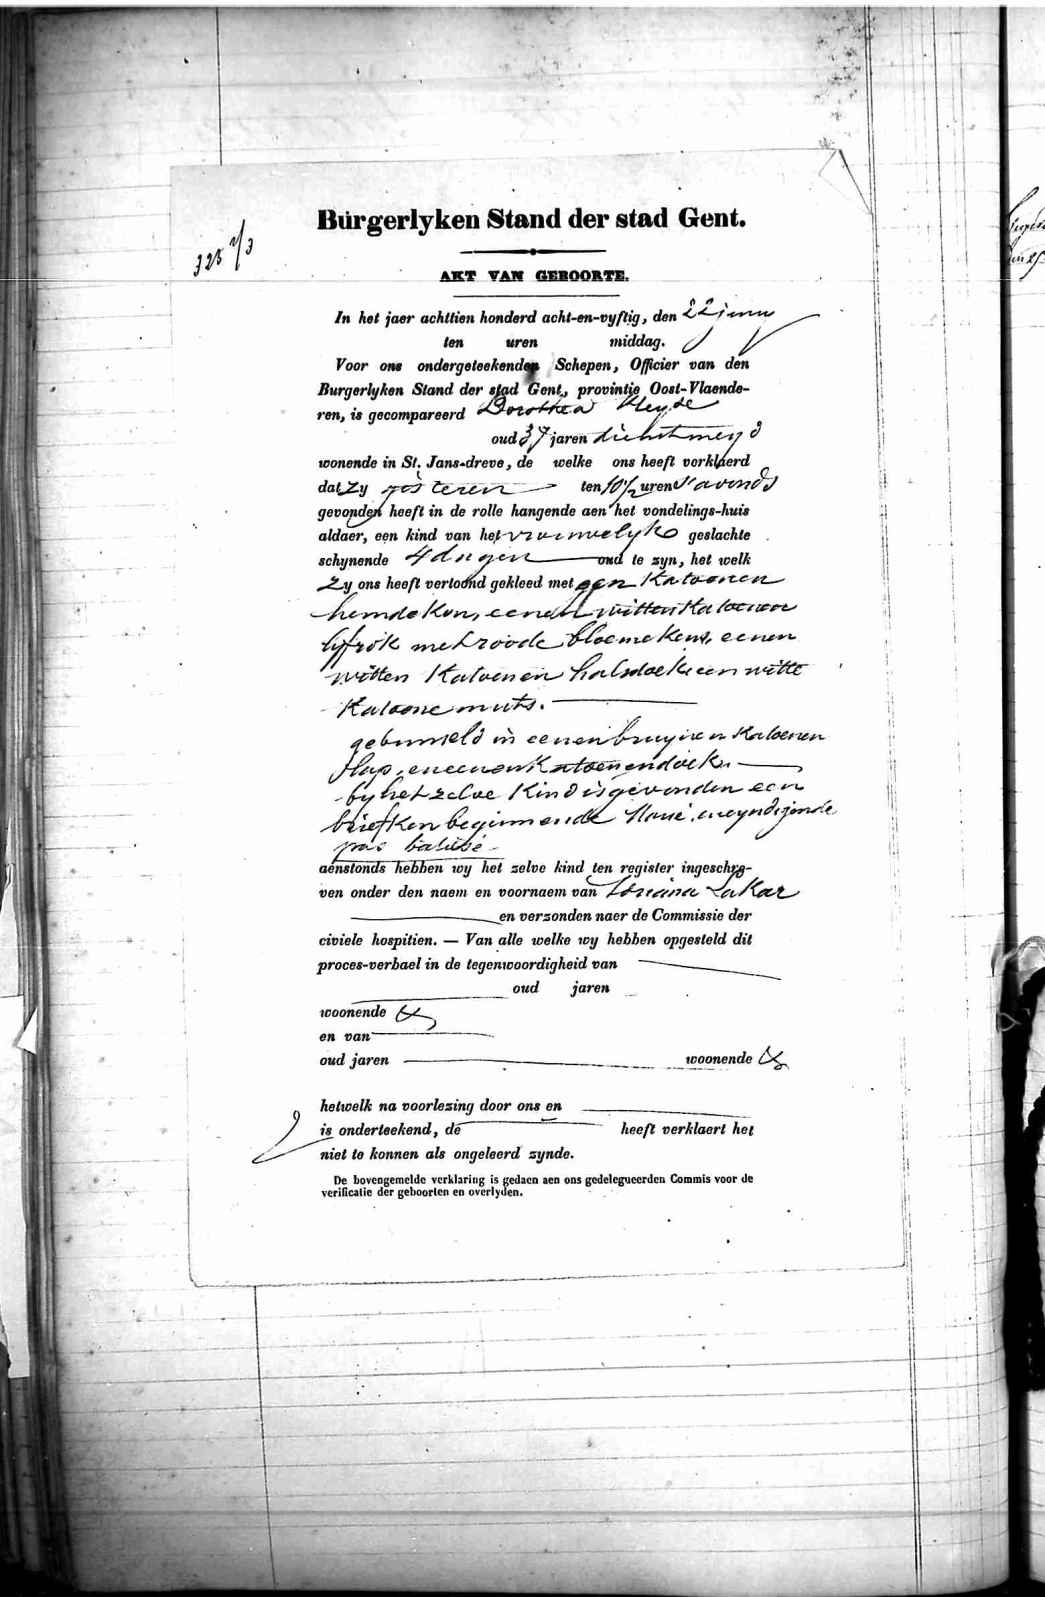 Burgerlyken Stand der stad Gent.
AKT VAN GEBOORTE.
In het jaer achttien honderd acht-en-vyftig, den 22 juny
ten uren middag.
Voor ons ondergeteekenden Schepen, Officier van den
Burgerlyken Stand der stad Gent, provintie Oost-Vlaende-
ren, is gecompareerd Dorothea
oud 37 jaren dienstmeyd
wonende in St. Jans-dreve, de welke ons heeft verklaerd
dat zy gisteren ten 10½ uren s'avonds
gevonden heeft in de rolle hangende aen het vondelings-huis
aldaer, een kind van het vrouwelyk geslachte
schynende 4 dagen oud te zyn, het welk
zy ons heeft vertoond gekleed met een Katoenen
hemdeken, eenen witten Katoenen
lyfrok met roode bloemekens, eenen
witten Katoenen halsdoek een witte
Katoene muts.
gebunseld in eenen bruynen Katoenen
slap, en eenen Katoenen doek.
by het zelve Kind is gevonden een
briefken beginnende Marie. eneyndigende
pas batisé
aenstonds hebben wy het zelve kind ten register ingeschre-
ven onder den naem en voornaem van Lakar
en verzonden naer de Commissie der
civiele hospitien. — Van alle welke wy hebben opgesteld dit
proces-verbael in de tegenwoordigheid van
oud jaren
woonende
en van
oud jaren woonende
hetwelk na voorlezing door ons en
is onderteekend, de heeft verklaert het
niet te konnen als ongeleerd zynde.
De bovengemelde verklaring is gedaen aen ons gedelegueerden Commis voor de
verificatie der geboorten en overlyden.